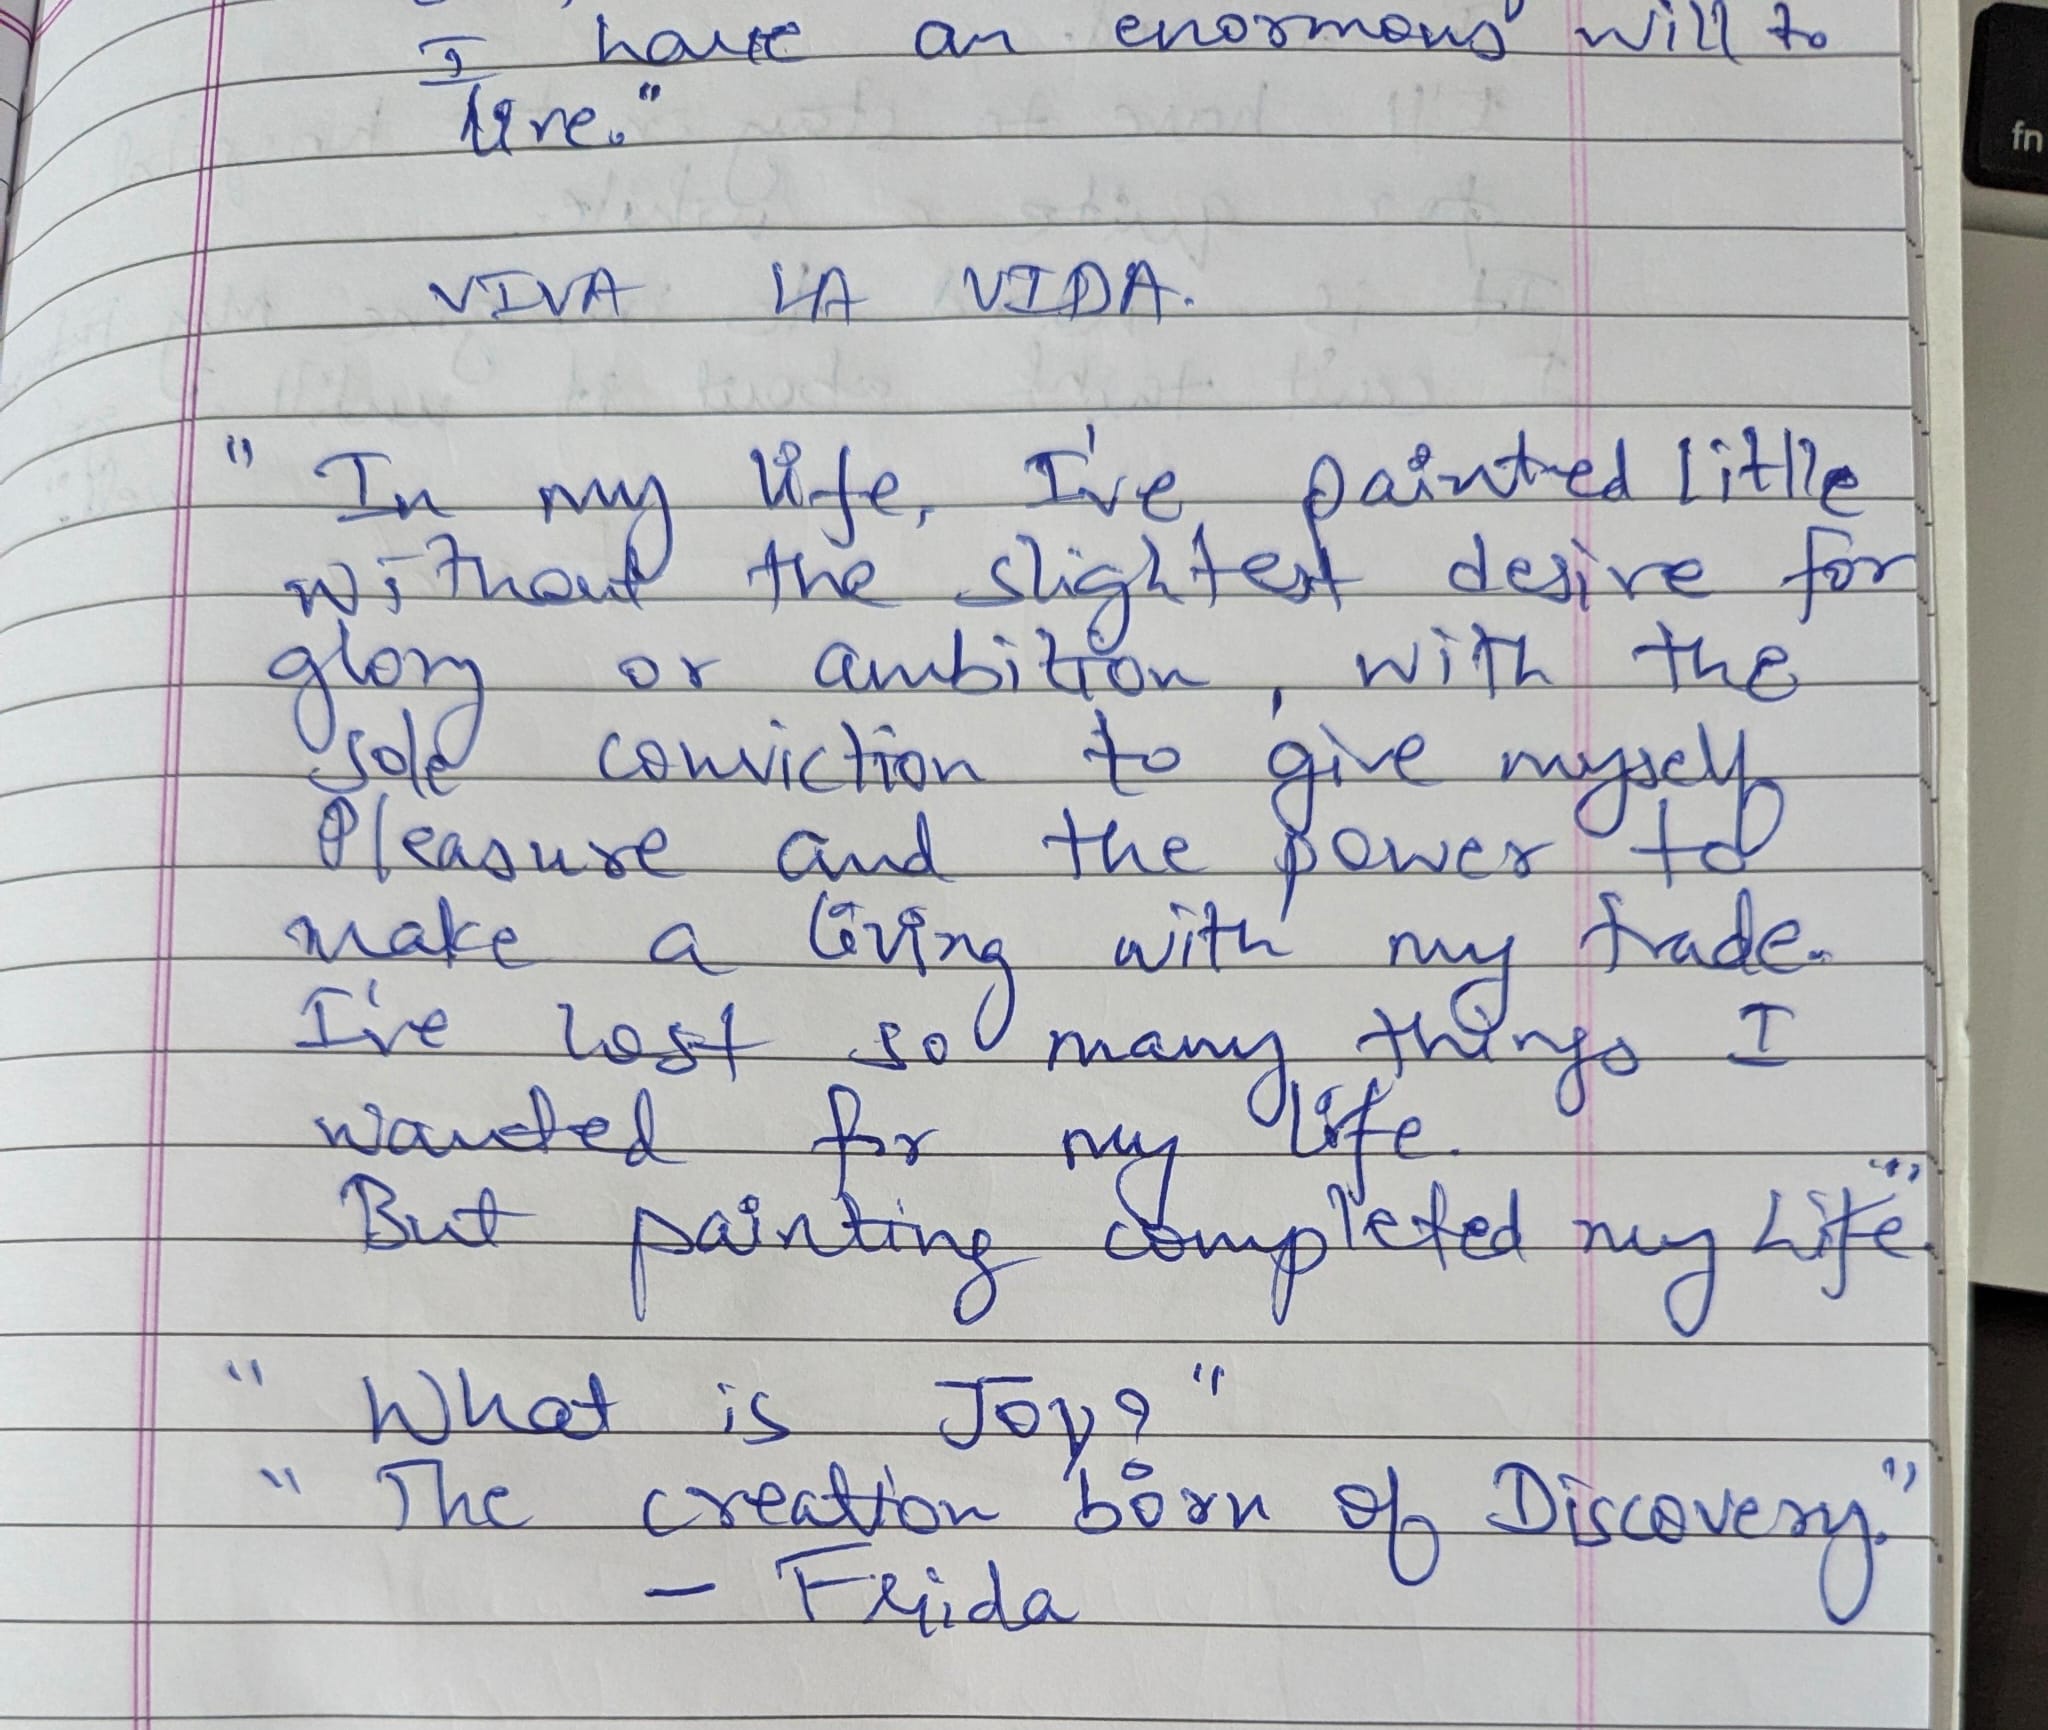 I have an enormous will to
live."
VIVA LA VIDA.
" In my life, I've painted little
without the slightest desire for
glory or ambition, with the
sole conviction to give myself
Pleasure and the power to
make a living with my trade.
I've lost so many things I
wanted for my life.
But painting completed my Life."
" What is Joy? "
" The creation born of Discovery."
- Frida
fn